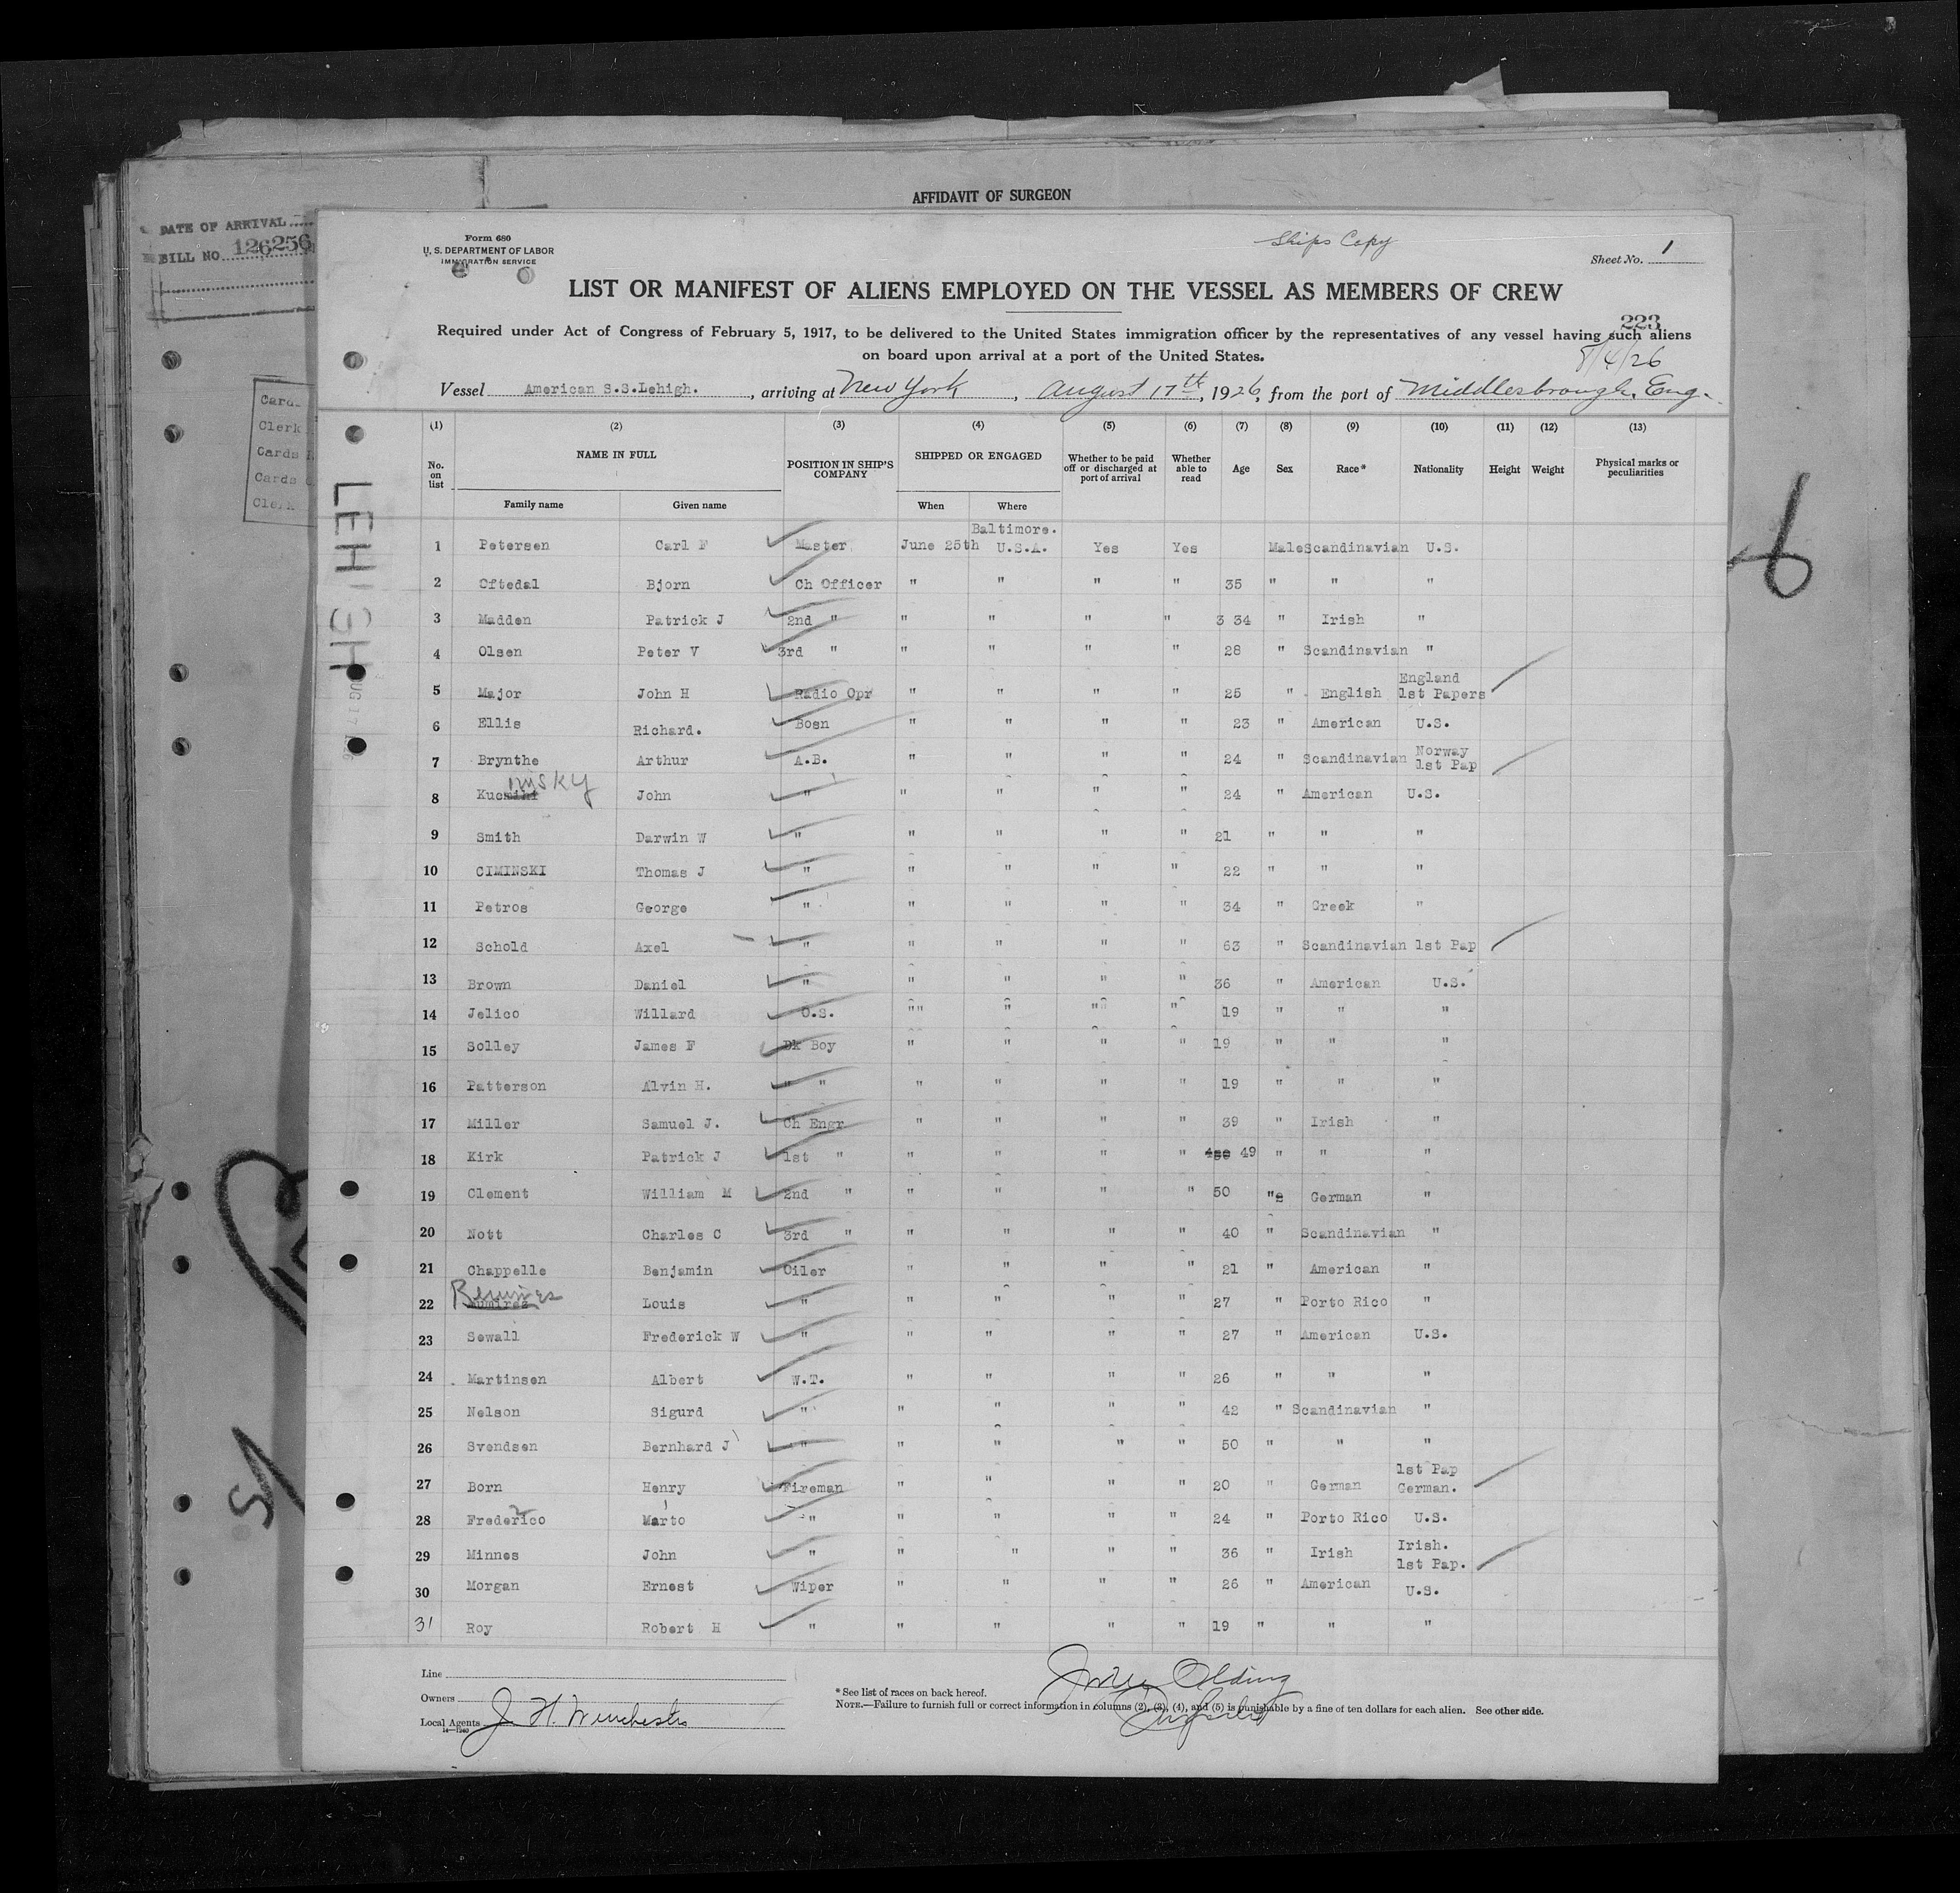 AFFIDAVIT OF SURGEON
DATE OF ARRIVAL
BILL NO. 126256
Card
Clerk
Cards
Cards
Clerk
LEHIGH
Form 686
U. S. DEPARTMENT OF LABOR
IMMIGRATION SERVICE
Ships Copy
Sheet No. 1
LIST OR MANIFEST OF ALIENS EMPLOYED ON THE VESSEL AS MEMBERS OF CREW
223
Required under Act of Congress of February 5, 1917, to be delivered to the United States immigration officer by the representatives of any vessel having such aliens
on board upon arrival at a port of the United States.
8/4/26
Vessel American S.S.Lehigh. , arriving at New York , August 17th, 1926, from the port of Middlesbrough, Eng.
(1) (2) (3) (4) (5) (6) (7) (8) (9) (10) (11) (12) (13)
No. on list NAME IN FULL POSITION IN SHIP'S COMPANY SHIPPED OR ENGAGED Whether to be paid off or discharged at port of arrival Whether able to read Age Sex Race* Nationality Height Weight Physical marks or peculiarities
Family name Given name When Where
1 Petersen Carl F Master June 25th Baltimore. U.S.A. Yes Yes Male Scandinavian U.S.
2 Oftedal Bjorn Ch Officer " " " " 35 " " "
3 Madden Patrick J 2nd " " " " " 3 34 " Irish "
4 Olsen Peter V 3rd " " " " " 28 " Scandinavian "
5 Major John H Radio Opr " " " " 25 " English England 1st Papers
6 Ellis Richard. Bosn " " " " 23 " American U.S.
7 Brynthe Arthur A.B. " " " " 24 " Scandinavian Norway 1st Pap
8 Kuc nisky John " " " " " 24 " American U.S.
9 Smith Darwin W " " " " " 21 " " "
10 CIMINSKI Thomas J " " " " " 22 " " "
11 Petros George " " " " " 34 " Greek "
12 Schold Axel " " " " " 63 " Scandinavian 1st Pap
13 Brown Daniel " " " " " 36 " American U.S.
14 Jelico Willard O.S. "" " " " 19 " " "
15 Solley James F Dk Boy " " " " 19 " " "
16 Patterson Alvin H. " " " " " " 19 " " "
17 Miller Samuel J. Ch Engr " " " " 39 " Irish "
18 Kirk Patrick J 1st " " " " " 49 " " "
19 Clement William M 2nd " " " " " 50 " German "
20 Nott Charles C 3rd " " " " " 40 " Scandinavian "
21 Chappelle Benjamin Oiler " " " " 21 " American "
22 Louis " " " " " 27 " Porto Rico "
23 Sewall Frederick W " " " " " 27 " American U.S.
24 Martinsen Albert W.T. " " " " 26 " " "
25 Nelson Sigurd " " " " " 42 " Scandinavian "
26 Svendsen Bernhard J " " " " " 50 " " "
27 Born Henry Fireman " " " " 20 " German 1st Pap German.
28 Frederico Marto " " " " " 24 " Porto Rico U.S.
29 Minnes John " " " " " 36 " Irish Irish. 1st Pap.
30 Morgan Ernest Wiper " " " " 26 " American U.S.
31 Roy Robert H " " " " " 19 " " "
Line
Owners
Local Agents J. H. Winchester
14—1240
* See list of races on back hereof.
NOTE.—Failure to furnish full or correct information in columns (2), (3), (4), and (5) is punishable by a fine of ten dollars for each alien. See other side.